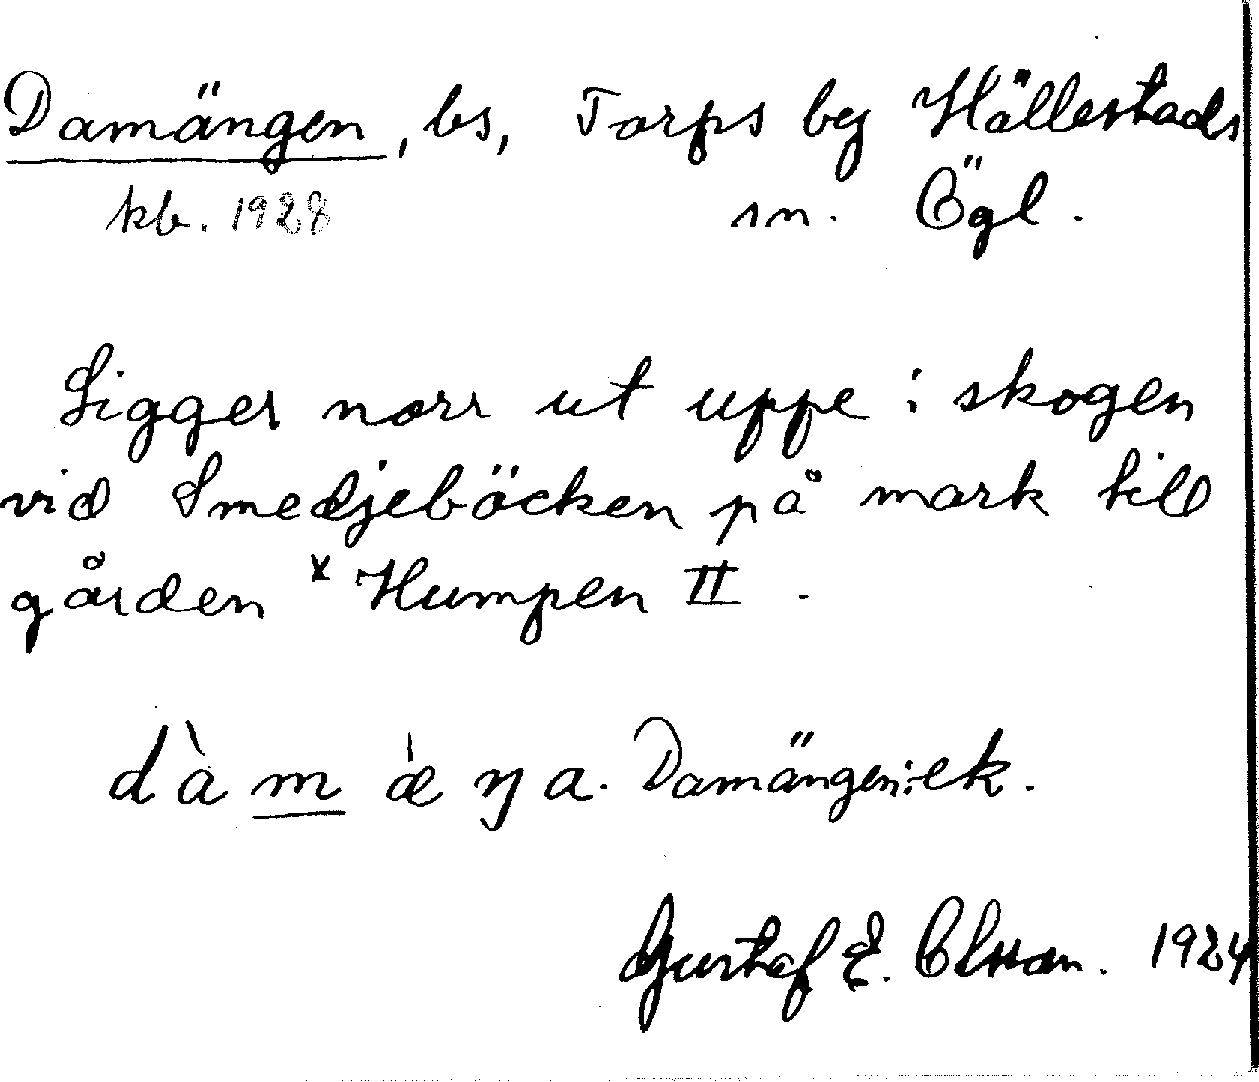 Damängen, bs, Torps by Hällestads
kb. 1928 sn. Ögl.
Ligger norr ut uppe i skogen
vid Smedjebäcken på mark till
gården x Humpen II.
dàmæ̀ŋa. Damängen:-ek.
Gustaf E. Olsson. 1924